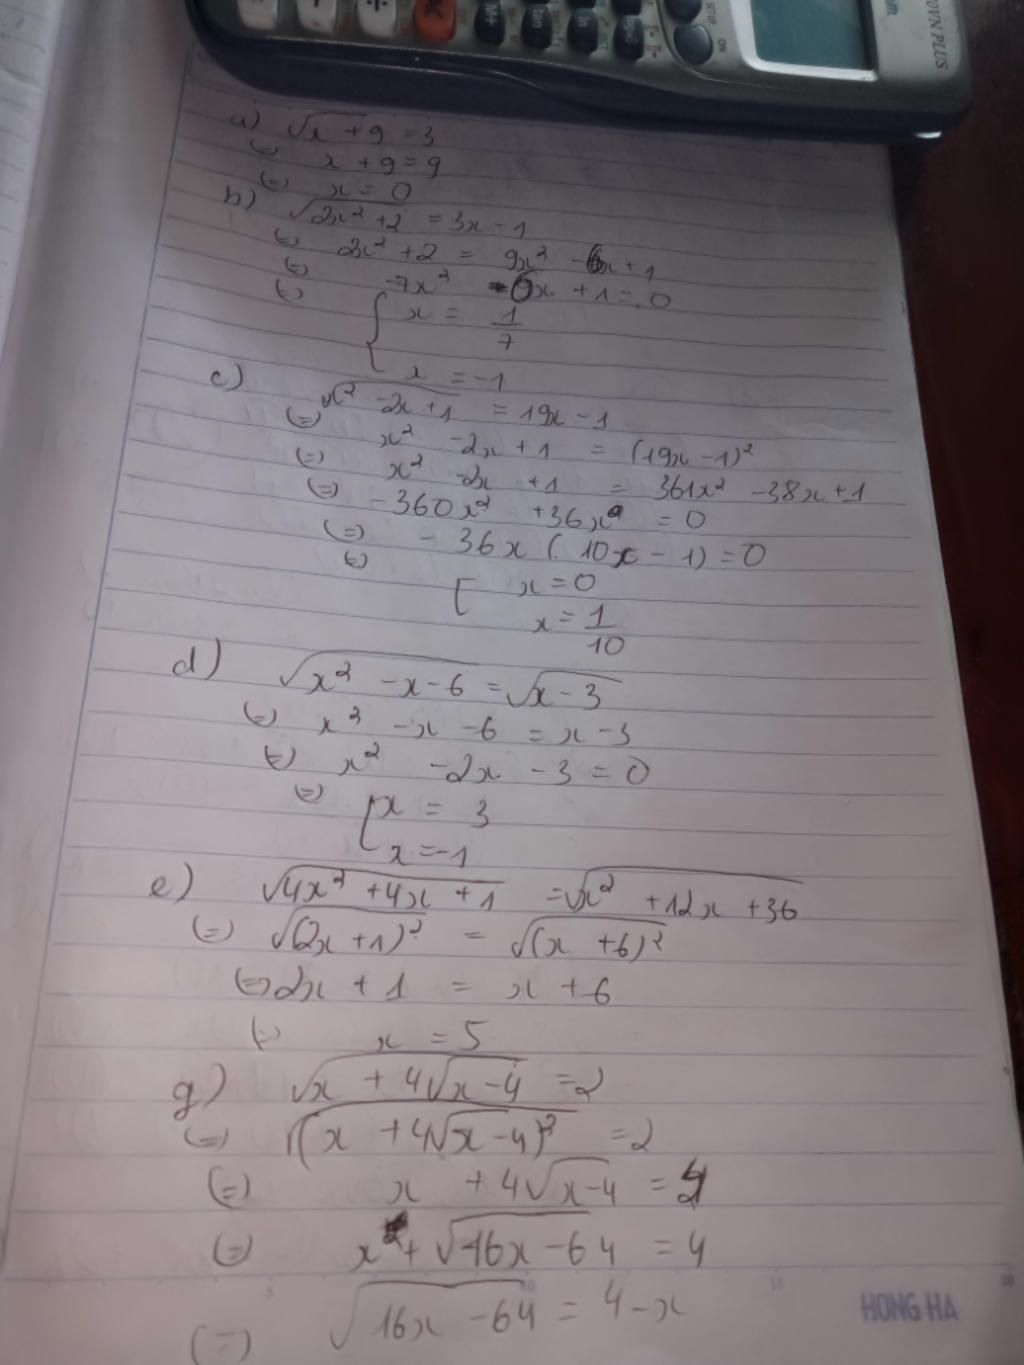 OVN PLUS
SETUP
ON
AC
M+
ln
a) √x + 9 = 3
(=) x + 9 = 9
(=) x = 0
b) √2x² + 2 = 3x - 1
(=) 2x² + 2 = 9x² - 6x + 1
(=) -7x² - 6x + 1 = 0
(=) { x = 1/7
x = -1
c) √x² - 2x + 1 = 19x - 1
(=) x² - 2x + 1 = (19x - 1)²
(=) x² - 2x + 1 = 361x² - 38x + 1
(=) - 360x² + 36x = 0
(=) - 36x ( 10x - 1) = 0
(=) [ x = 0
x = 1/10
d) √x² - x - 6 = √x - 3
(=) x² - x - 6 = x - 3
(=) x² - 2x - 3 = 0
(=) [ x = 3
x = -1
e) √4x² + 4x + 1 = √x² + 12x + 36
(=) √(2x + 1)² = √(x + 6)²
(=) 2x + 1 = x + 6
(=) x = 5
g) √x + 4√x - 4 = 2
(=) √(x + 4√x - 4)² = 2
(=) x + 4√x - 4 = 4
(=) x + √16x - 64 = 4
(=) √16x - 64 = 4 - x
HONG HA